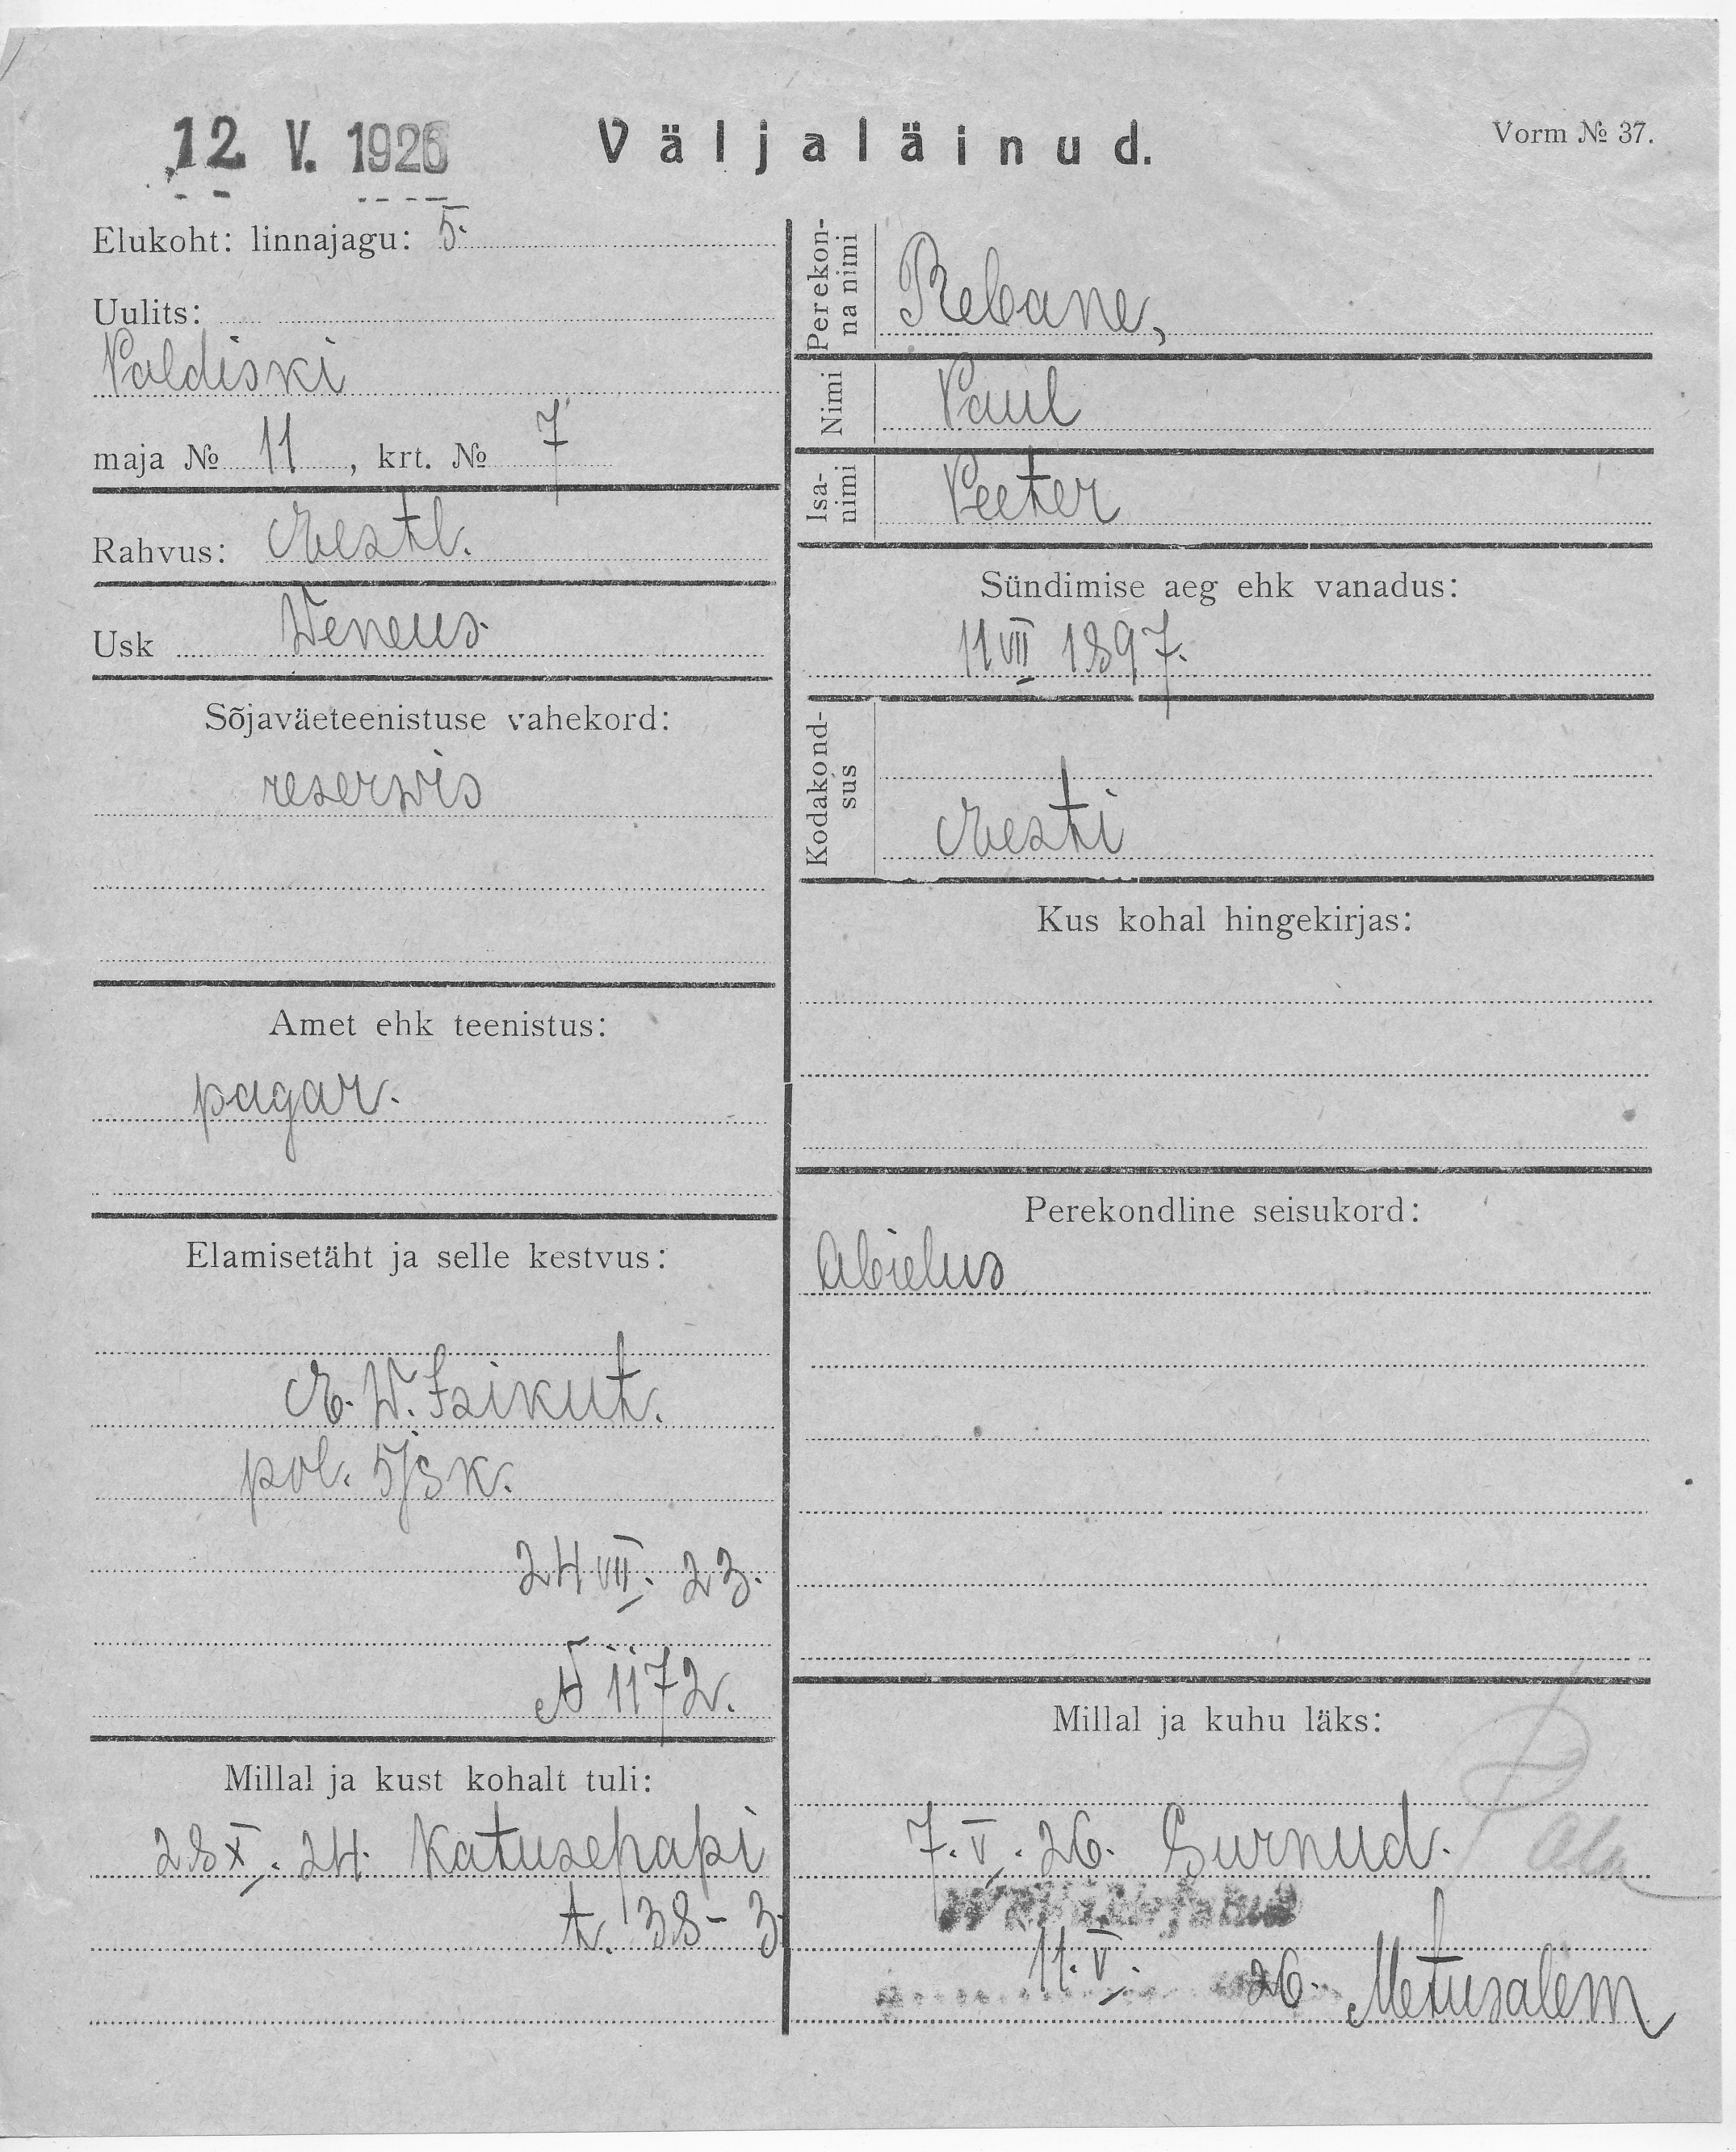 12. V. 1926
Väljaläinud.
Vorm № 37.
Elukoht: linnajagu: 5.
Uulits:
Paldiski
maja № 11, krt. № 7
Rahvus: Eestl.
Usk Weneus.
Sõjaväeteenistuse vahekord:
reserwis
Amet ehk teenistus:
pagar.
Elamisetäht ja selle kestvus:
E. W. Isikut.
pol. 5/jsk.
24 VII. 23.
N 1172.
Millal ja kust kohalt tuli:
28 X. 24. Katusepapi
t. 38-3
Perekonna nimi
Rebane,
Nimi
Paul
Isanimi
Peeter
Sündimise aeg ehk vanadus:
11 VII 1897.
Kodakondsus
Eesti
Kus kohal hingekirjas:
Perekondline seisukord:
Abielus
Millal ja kuhu läks:
7. V. 26. Surnud.
11. V. 26. Metusalem